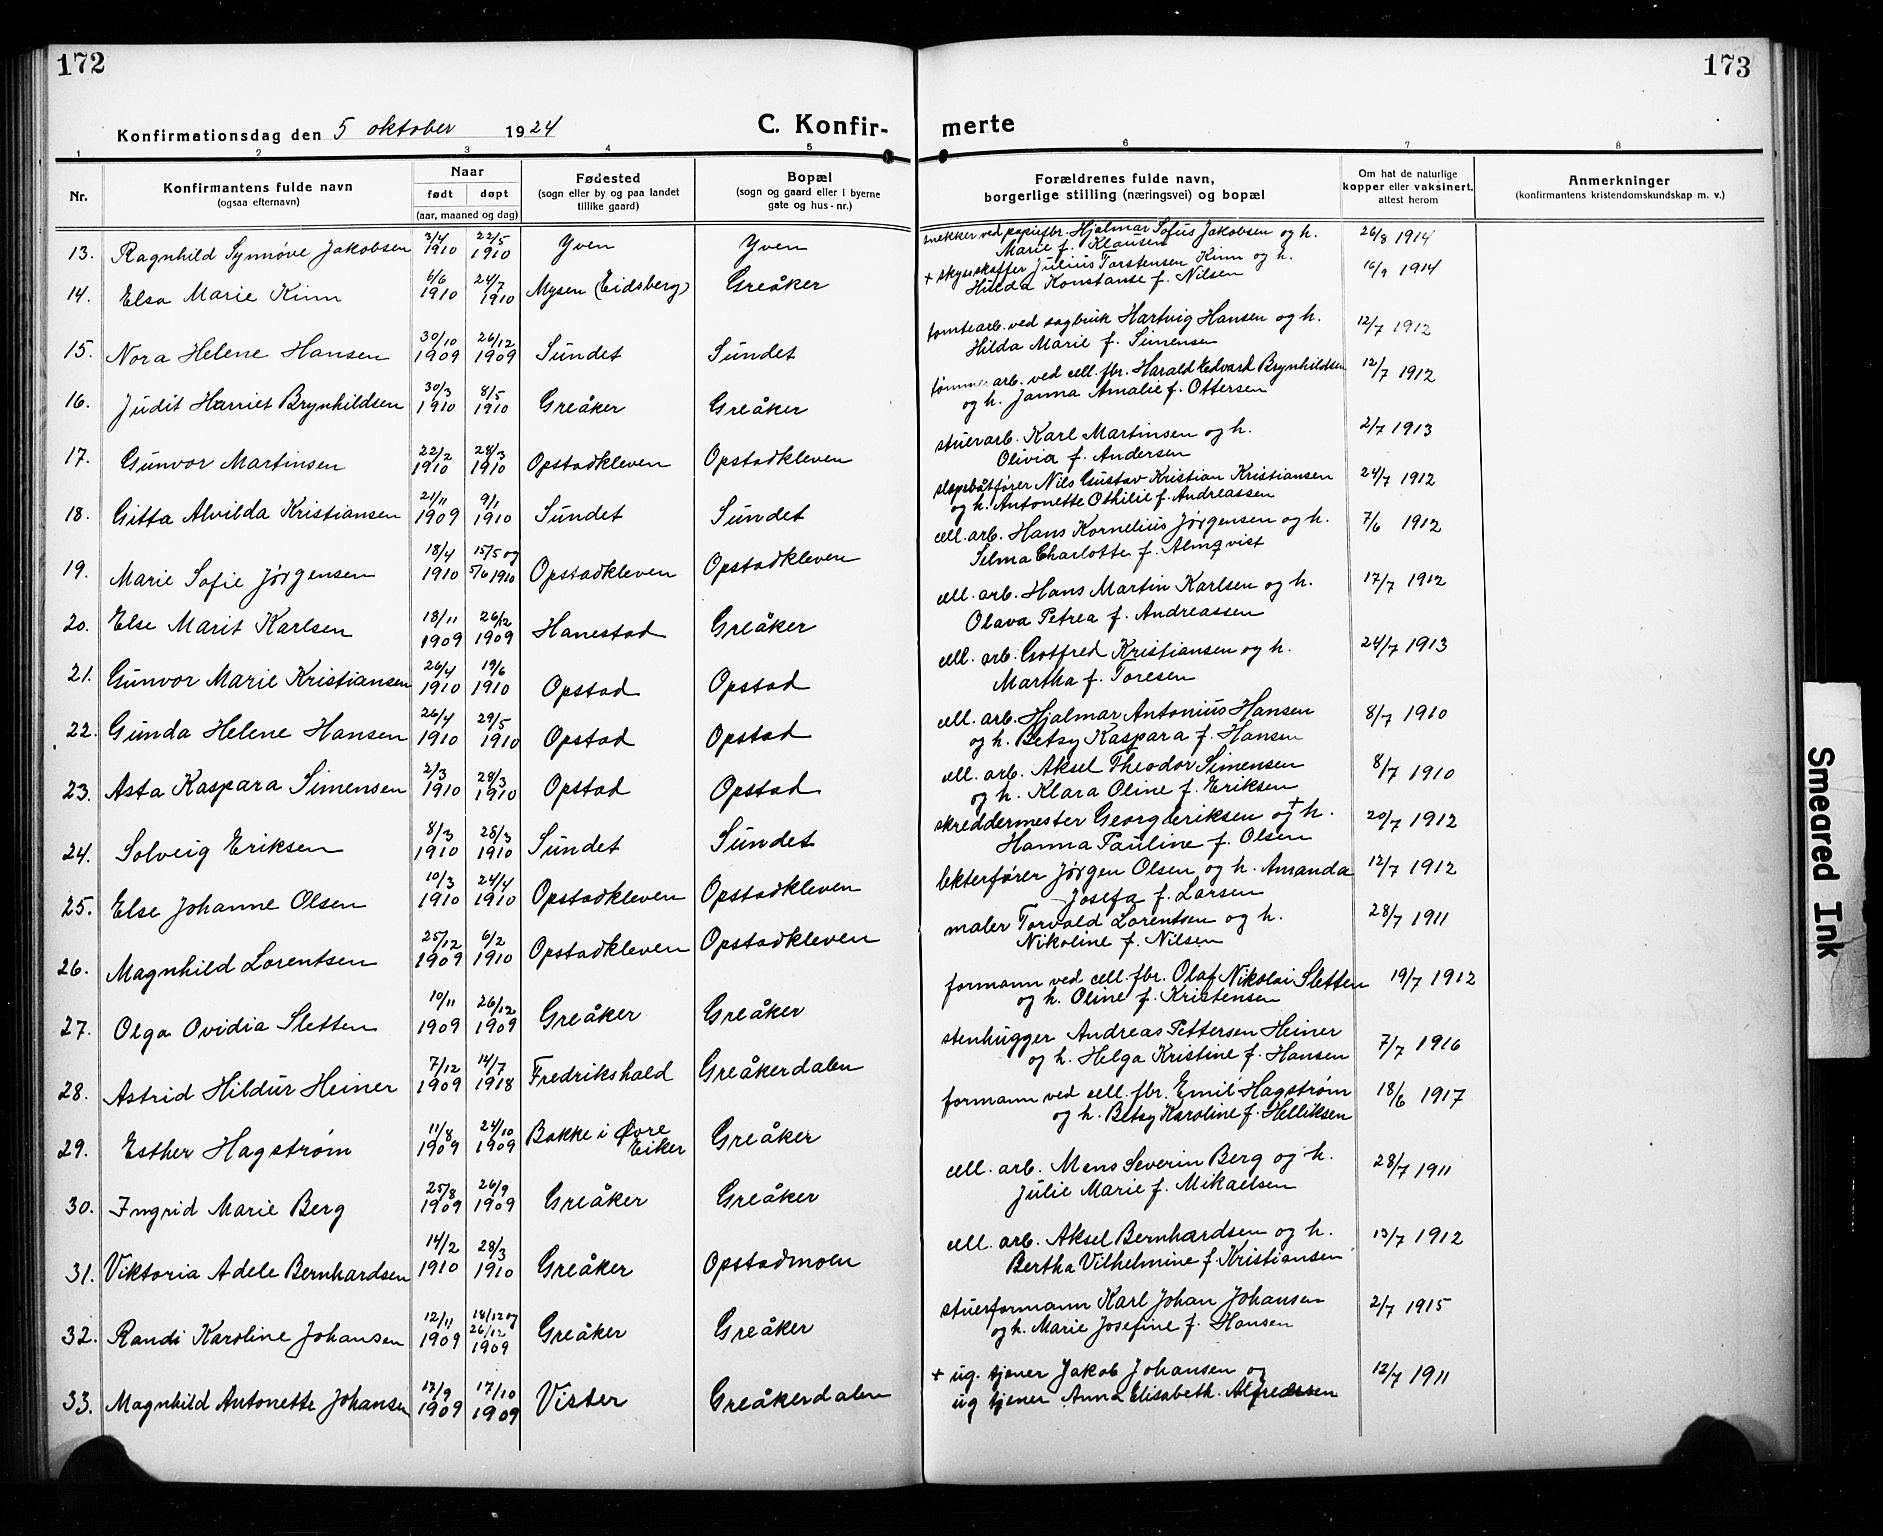 172
173
Konfirmationsdag den 5 oktober 1924
C. Konfir-
merte
1 2 3 4 5 6 7 8
Nr.
Konfirmantens fulde navn
(ogsaa efternavn)
Naar
født døpt
(aar, maaned og dag)
Fødested
(sogn eller by og paa landet
tillike gaard)
Bopæl
(sogn og gaard eller i byerne
gate og hus-nr.)
Forældrenes fulde navn,
borgerlige stilling (næringsvei) og bopæl
Om hat de naturlige
kopper eller vaksinert,
attest herom
Anmerkninger
(konfirmantens kristendomskundskap m. v.)
13. Ragnhild Synnøve Jakobsen 3/4 1910 22/5 1910 Yven Yven snekker ved papirfbr. Hjalmar Sofus Jakobsen og h. 26/8 1914
Marie f. Klausen
14. Elsa Marie Kinn 6/6 1910 24/7 1910 Mysen (Eidsberg) Greåker + skysskaffer Julius Torstensen Kinn og h. 16/9 1914
Hilda Konstanse f. Nilsen
15. Nora Helene Hansen 30/10 1909 26/12 1909 Sundet Sundet tomtearb. ved sagbruk Hartvig Hansen og h. 12/7 1912
Hilda Marie f. Simensen
16. Judit Harriet Brynhildsen 30/3 1910 8/5 1910 Greåker Greåker tømmerarb. ved cell. fbr. Harald Edvard Brynhildsen 12/7 1912
og h. Janna Amalie f. Ottersen
17. Gunvor Martinsen 22/2 1910 28/3 1910 Opstadkleven Opstadkleven stuerarb. Karl Martinsen og h. 2/7 1913
Olivia f. Andersen
18. Gitta Alvilda Kristiansen 21/11 1909 9/1 1910 Sundet Sundet slepebåtfører Nils Gustav Kristian Kristiansen 24/7 1912
og h. Antonette Othilie f. Andreassen
19. Marie Sofie Jørgensen 18/4 1910 15/5 og 5/6 1910 Opstadkleven Opstadkleven cell. arb. Hans Kornelius Jørgensen og h. 7/6 1912
Selma Charlotte f. Almqvist
20. Else Marit Karlsen 18/11 1909 26/12 1909 Hanestad Greåker cell. arb. Hans Martin Karlsen og h. 17/7 1912
Olava Petrea f. Andreassen
21. Gunvor Marie Kristiansen 26/4 1910 19/6 1910 Opstad Opstad cell. arb. Gotfred Kristiansen og h. 24/7 1913
Martha f. Toresen
22. Gunda Helene Hansen 26/4 1910 29/5 1910 Opstad Opstad cell. arb. Hjalmar Antonius Hansen 8/7 1910
og h. Betsy Kaspara f. Hansen
23. Asta Kaspara Simensen 2/3 1910 28/3 1910 Opstad Opstad cell. arb. Aksel Theodor Simensen 8/7 1910
og h. Klara Oline f. Eriksen
24. Solveig Eriksen 8/3 1910 28/3 1910 Sundet Sundet skreddermester Georg Eriksen og + h. 20/7 1912
Hanna Pauline f. Olsen
25. Else Johanne Olsen 10/3 1910 24/4 1910 Opstadkleven Opstadkleven lekterfører Jørgen Olsen og h. Amanda 12/7 1912
Josefa f. Larsen
26. Magnhild Lorentsen 25/12 1909 6/2 1910 Opstadkleven Opstadkleven maler Torvald Lorentsen og h. 28/7 1911
Nikoline f. Nilsen
27. Olga Ovidia Sletten 10/11 1909 26/12 1909 Greåker Greåker formann ved cell. fbr. Olaf Nikolai Sletten 19/7 1912
og h. Oline f. Kristensen
28. Astrid Hildur Heiner 7/12 1909 14/7 1918 Fredrikshald Greåkerdalen stenhugger Andreas Pettersen Heiner 7/7 1916
og h. Helga Kristine f. Hansen
29. Esther Hagstrøm 11/8 1909 24/10 1909 Bakke i Øvre Eiker Greåker formann ved cell. fbr. Emil Hagstrøm 18/6 1917
og h. Betsy Karoline f. Helliksen
30. Ingrid Marie Berg 25/8 1909 26/9 1909 Greåker Greåker cell. arb. Mens Severin Berg og h. 28/7 1911
Julie Marie f. Mikaelsen
31. Viktoria Adele Bernhardsen 14/2 1910 28/3 1910 Greåker Opstadmoen cell. arb. Aksel Bernhardsen og h. 13/7 1912
Bertha Vilhelmine f. Kristiansen
32. Randi Karoline Johansen 12/11 1909 18/12 og 26/12 1909 Greåker Greåker stuerformann Karl Johan Johansen 2/7 1915
og h. Marie Josefine f. Hansen
33. Magnhild Antonette Johansen 12/9 1909 17/10 1909 Vister Greåkerdalen + ug. tjener Jakob Johansen og 12/7 1911
ug tjener Anna Elisabeth Alfredersen
Smeared Ink